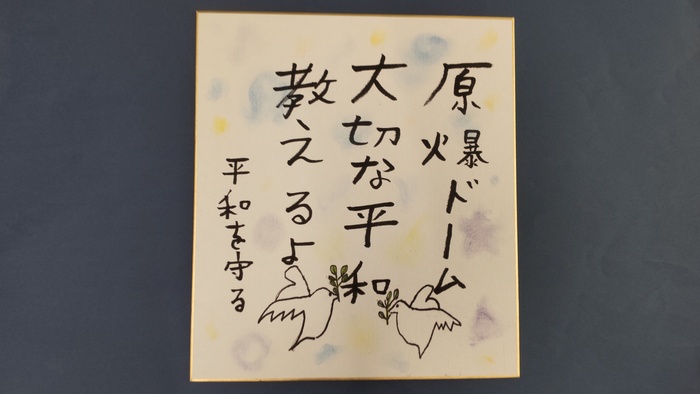 原爆ドーム
大切な平和
教えるよ
平和を守る